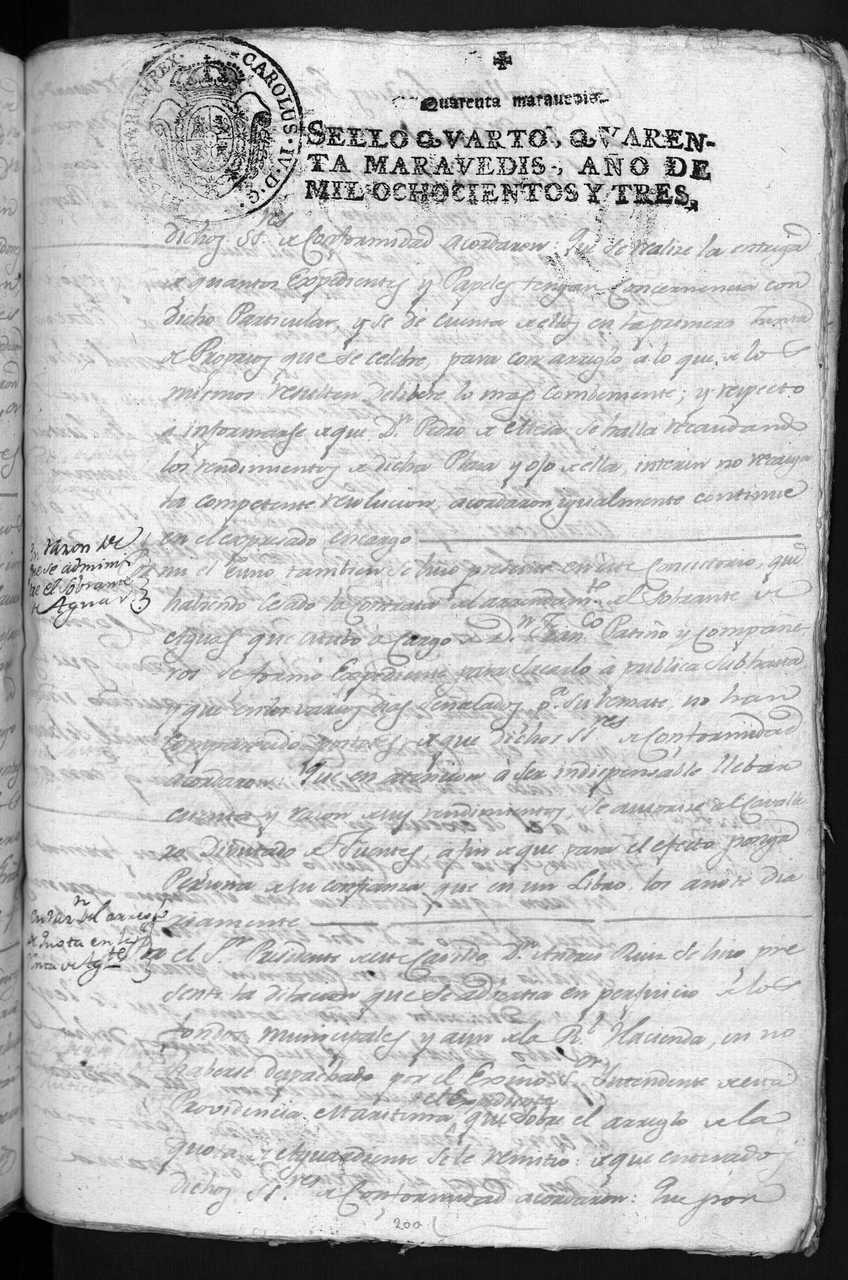 CAROLUS·IV·D·G·
HISPANIAR·REX·
Quarenta maravedis
SELLO QVARTO, QVAREN-
TA MARAVEDIS, AÑO DE
MIL OCHOCIENTOS Y TRES.
dichos SS.res de Conformidad acordaron: Que se realize la entrega
de quantos Expedientes y Papeles tengan concernencia con
dicho Particular, y se dé cuenta de ellos en la primera Junta
de Propios que se celebre, para con arreglo à lo que de los
mismos resulten delibere lo mas combeniente; y respecto
à informarse de que D.n Pedro de se halla recaudando
los rendimientos de dicha Plaza y ojo de ella, interin no recaiga
la competente resolucion, acordaron igualmente continue
en el expresado encargo
En razon de
que se admini
tre el Sobrante
de Aguas
mi el Esno. tambien se hizo presente en este Consistorio, que
habiendo cesado la contrata del arrendam.to del Sobrante de
Aguas que estubo à Cargo de D.n Fran.co Patiño y Compañe
ros se formó Expediente para sacarlo à publica Subhasta
y que en los varios dias señalados p.a su remate, no han
comparecido postores, de que dichos SS.res de Conformidad
acordaron: Que en atencion à ser indispensable llebar
cuenta y razon de sus rendimientos, se autorize al Cavalle
ro Diputado de Fuentes, afin de que para el efecto ponga
Persona de su confianza, que en un Libro los anote dia
riamente
En raz.n del arreg
de Quota en la
Venta de Ag.te
el S.r Presidente de este Cavildo D.n Andres Ruiz se hizo pre
sente la dilacion que se advertia en perjuicio de los
fondos municipales y aun de la R.l Hacienda, en no
haberse despachado por el Exsmo. S.or Intendente de esta
Providencia Maritima el Expediente que sobre el arreglo de la
quota de Aguardiente se le remitio: de que enterados
dichos SS.res de Conformidad acordaron: Que p.or
200